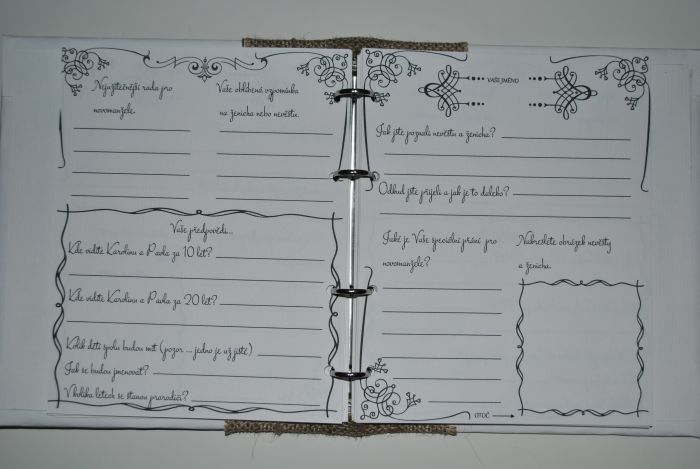 Nejužitečnější rada pro
novomanžele.
Vaše oblíbená vzpomínka
na ženicha nebo nevěstu.
Vaše předpovědi...
Kde vidíte Karolínu a Pavla za 10 let?
Kde vidíte Karolínu a Pavla za 20 let?
Kolik dětí spolu budou mít (pozor ... jedno je už jisté)
Jak se budou jmenovat?
V kolika letech se stanou prarodiči?
VAŠE JMÉNO
Jak jste poznali nevěstu a ženicha?
Odkud jste přijeli a jak je to daleko?
Jaké je Vaše speciální přání pro
novomanžele?
Nakreslete obrázek nevěsty
a ženicha.
OTOČ